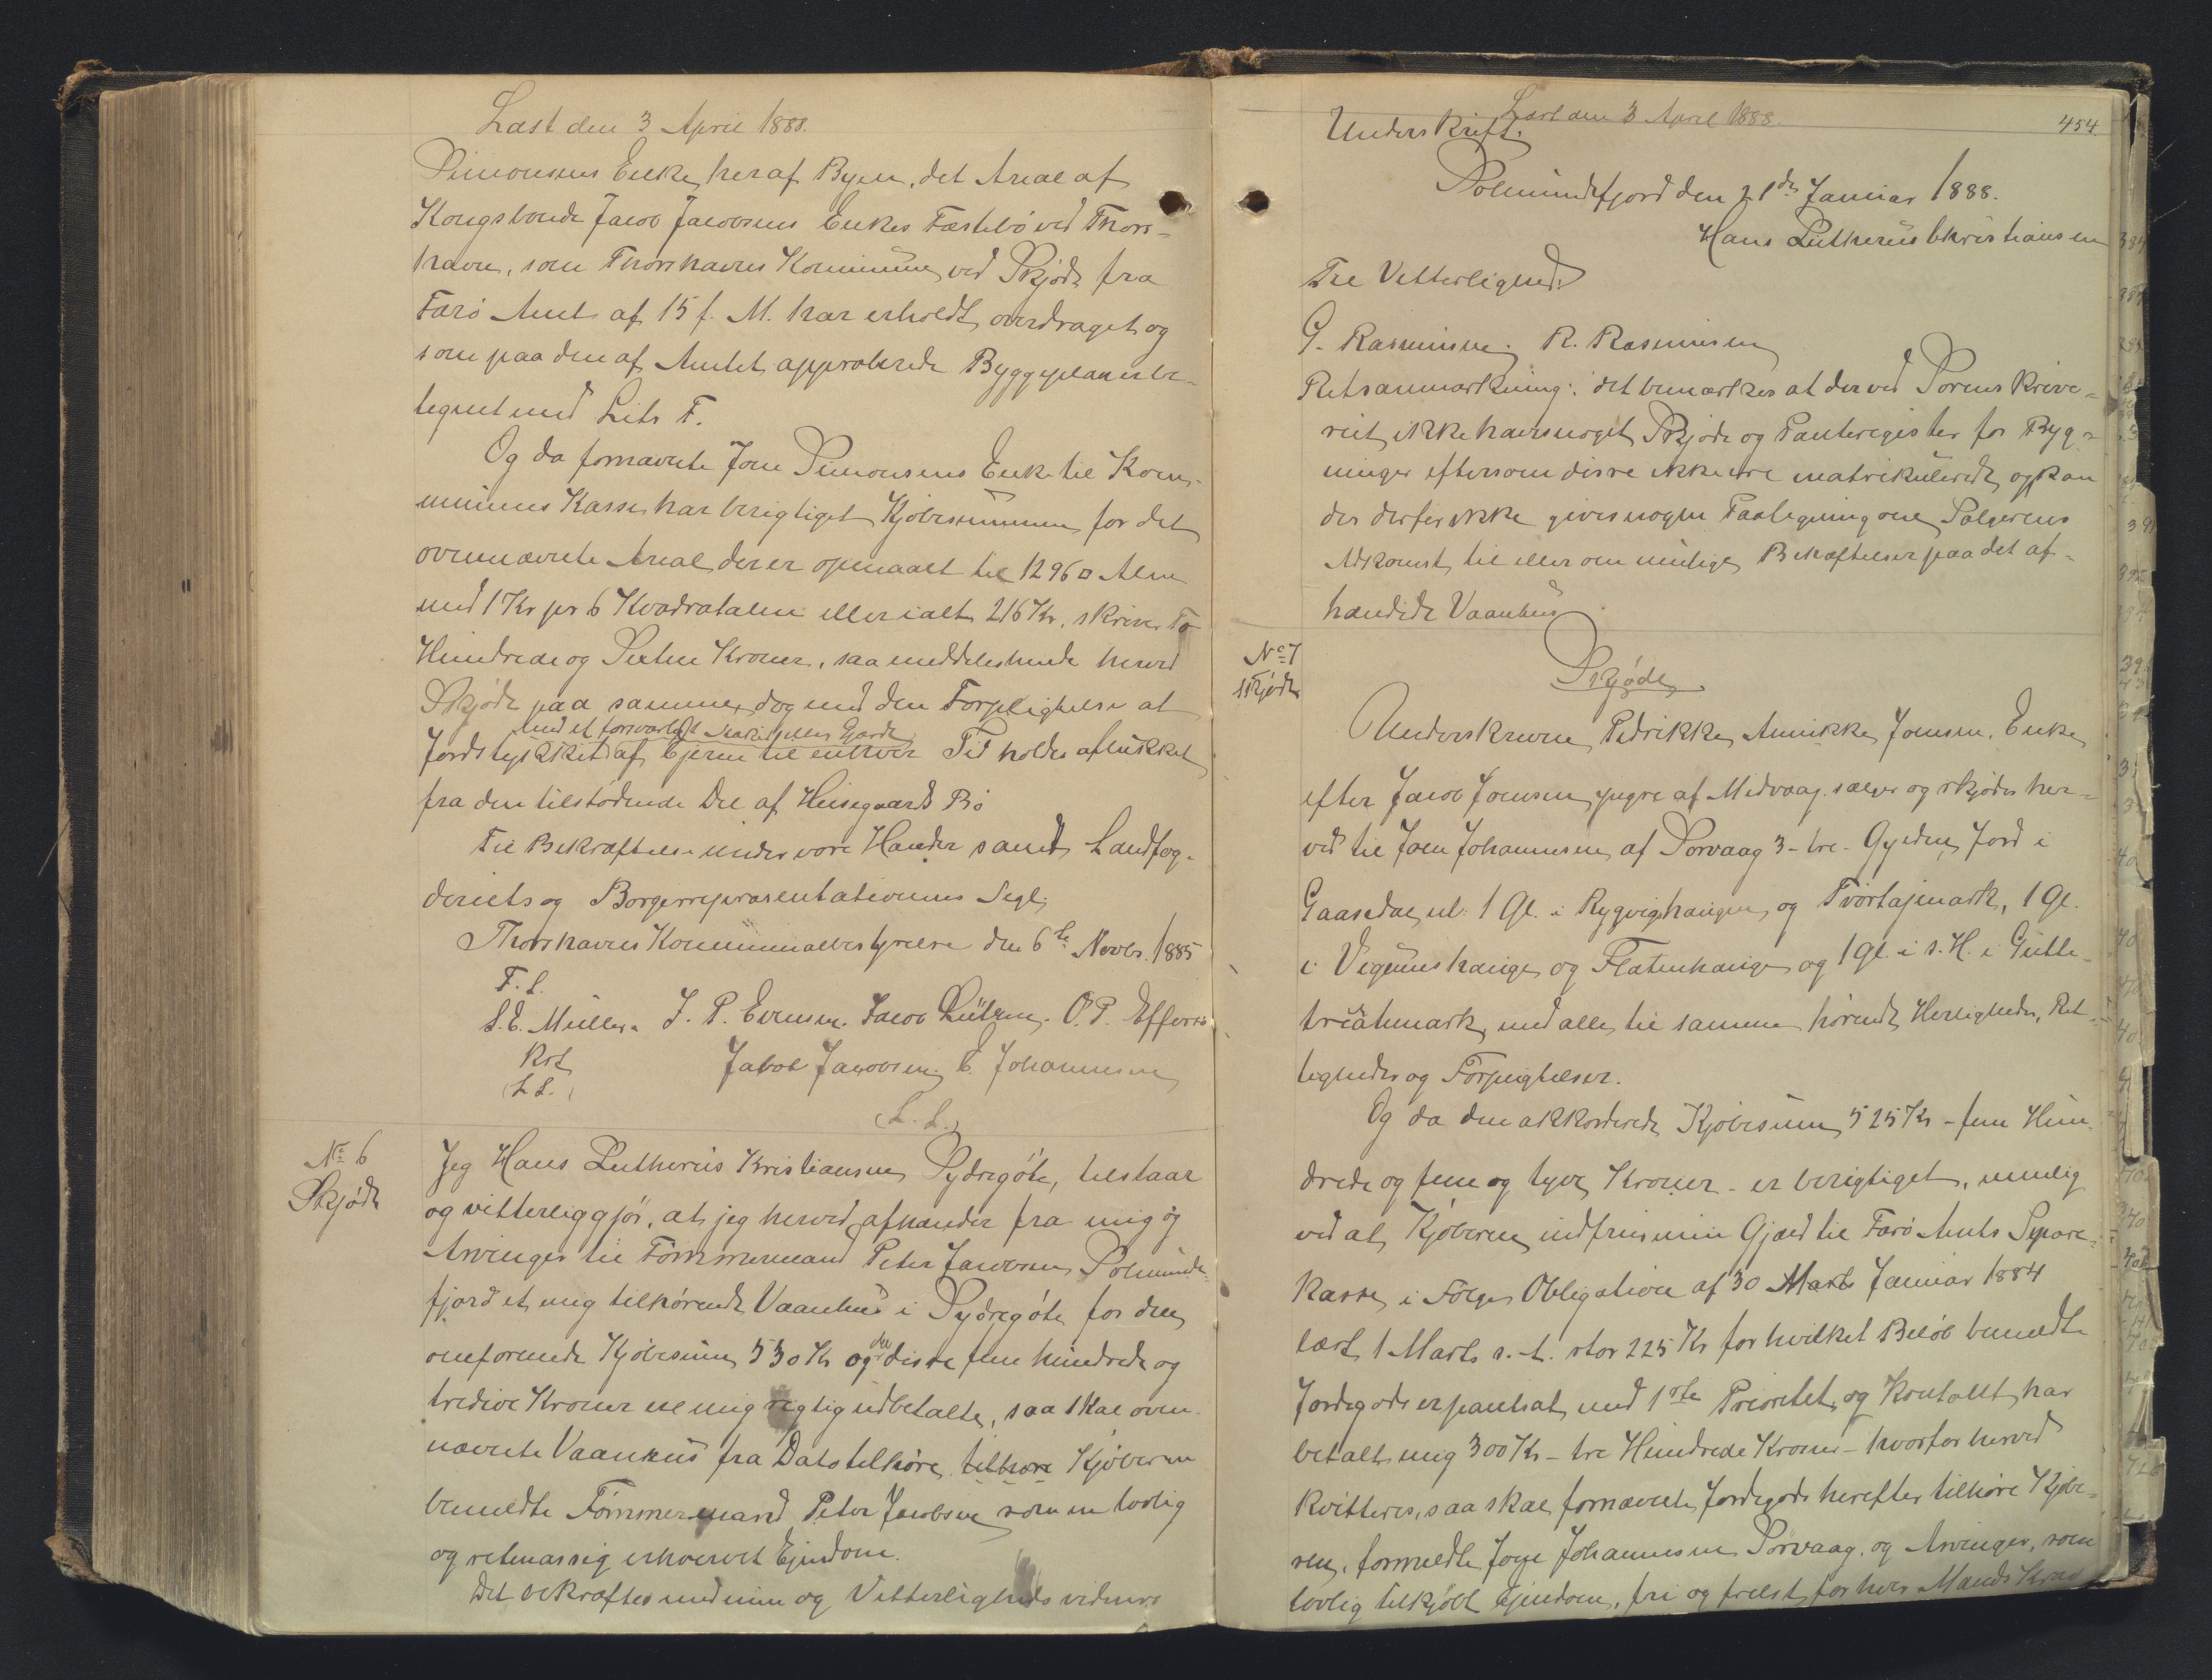 Læst den 3 April 1888.
Simonsens Enke, her af Byen, det Areal af
Kongsbonde Jacob Jacobsens Enkes Fæstebø ved Thors-
havn, som Thorshavns Kommune ved Skjøde fra
Færø Amt af 15 f. M. har erholdt overdraget og
som paa den af Amtet approberede Byggeplan er be-
tegnet med Litr F.
Og da fornævnte Joen Simonsens Enke til Kom-
munens Kasse har berigtiget Kjøbesummen for det
ovennævnte Areal der er opmaalt til 1296 □ Alen
med 1 Kr pr 6 Kvadratalen eller ialt 216 Kr, skriver To
Hundrede og Sexten Kroner, saa meddeles hende herved
Skjøde paa samme, dog med den Forpligtelse at
med et forsvarligt Stakit eller Gjærde
Jordstykket af Ejeren til enhver Tid holdes aflukket
fra den tilstødende Del af Husegaards Bø
Til Bekræftelse under vore Hænder samt Landfog-
deriets og Borgerrepræsentationens Segl,
Thorshavns Kommunalbestyrelse den 6te Novbr. 1885
F. f.
S. E. Müller. J. P. Evensen. Jacob Lützen. O. P. Effersø
Kst
(L S.) Jakob Jacobsen. E. Johannesen
(L. S.)
No 6
Skjøde
Jeg Hans Lutherus Kristiansen, Sydregøte, tilstaar
og vitterliggjør, at jeg herved afhænder fra mig og
Arvinger til Tømmermand Peter Jacobsen, Solmunde-
fjord et mig tilhørende Vaanhus i Sydregøte for den
omforenede Kjøbesum 530 Kr og da disse fem hundrede og
tredive Kroner ere mig rigtig udbetalte, saa skal oven-
nævnte Vaanhus fra Dato tilhøre tilhøre Kjøberen
bemeldte Tømmermand Peter Jacobsen som en lovlig
og retmæssig erhvervet Ejendom.
Det bekræftes med min og Vitterligheds vidners
Læst den 3 April 1888.
454
Underskrift.
Solmundefjord den 21de Januar 1888.
Hans Lutherus Christiansen
Til Vitterlighed:
G. Rasmussen. R. Rasmussen
Retsanmærkning: det bemærkes at der ved Sorenskrive-
riet ikke haves noget Skjøde og Panteregister for Byg-
ninger eftersom disse ikke ere matrikulerede, og kan
der derfor ikke gives nogen Paategning om Sælgerens
Adkomst til eller om mulige Behæftelser paa det af-
hændede Vaanhus
No 7
Skjøde
Skjøde
Underskrevne, Pedrikke Annikke Joensen, Enke
efter Jacob Joensen yngre af Midvaag sælger og skjøder her-
ved til Joen Johannesen af Sørvaag 3 - tre - Gylden Jord i
Gaasedal nl: 1 Gl. i Rygvigshaugen og Tvørtajmark, 1 Gl.
i Vegumshauge og Flatenhauge og 1 Gl. i s. H. i Gutte-
trëatumark, med alle til samme hørende Herligheder, Ret-
tigheder og Forpligtelser.
Og da den akkorderede Kjøbesum, 525 Kr - fem Hun-
drede og fem og tyve Kroner - er berigtiget, nemlig
ved at Kjøberen indfrier min Gjæld til Færø Amts Spare-
kasse, i Følge Obligation af 30 Marts Januar 1884
læst 1 Marts s. A. stor 225 Kr for hvilket Beløb bemeldte
Jordegods er pantsat med 1ste Prioritet, og Kontant har
betalt mig 300 Kr - tre Hundrede Kroner - hvorfor herved
kvitteres, saa skal fornævnte Jordegods herefter tilhøre Kjøbe-
ren, formeldte Joen Johannesen Sørvaag, og Arvinger, som
lovlig tilkjøbt Ejendom, fri og frelst for hver Mands Krav